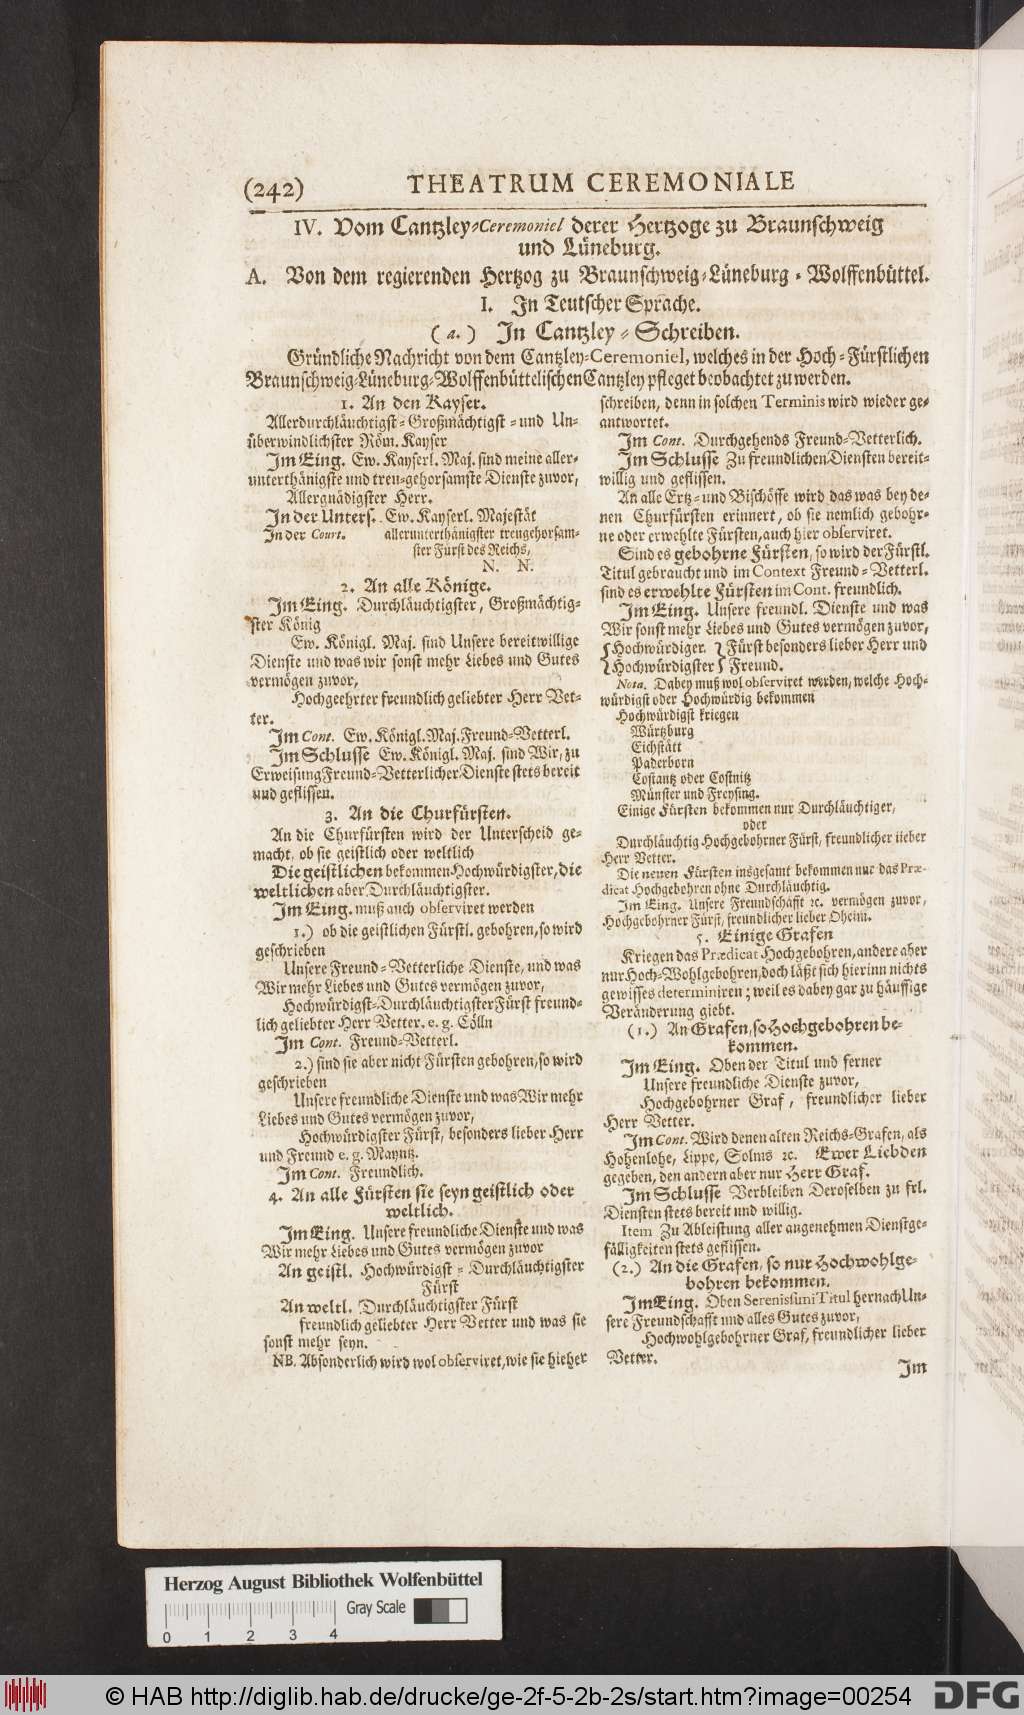 (242) THEATRUM CEREMONIALE
IV. Vom Cantzley-Ceremoniel derer Hertzoge zu Braunschweig
und Lüneburg.
A. Von dem regierenden Hertzog zu Braunschweig-Lüneburg-Wolffenbüttel.
I. In Teutscher Sprache.
(a.) In Cantzley-Schreiben.
Gründliche Nachricht von dem Cantzley-Ceremoniel, welches in der Hoch-Fürstlichen
Braunschweig-Lüneburg-Wolffenbüttelischen Cantzley pfleget beobachtet zu werden.
1. An den Kayser.
Allerdurchläuchtigst-Großmächtigst-und Un-
überwindlichster Röm. Kayser
Im Eing. Ew. Kayserl. Maj. sind meine aller-
unterthänigste und treu-gehorsamste Dienste zuvor,
Allergnädigster Herr.
In der Unters. Ew. Kayserl. Majestät
In der Court. allerunterthänigster treugehorsam-
ster Fürst des Reichs,
N. N.
2. An alle Könige.
Im Eing. Durchläuchtigster, Großmächtig-
ster König
Ew. Königl. Maj. sind Unsere bereitwillige
Dienste und was wir sonst mehr Liebes und Gutes
vermögen zuvor,
Hochgeehrter freundlich geliebter Herr Vet-
ter.
Im Cont. Ew. Königl. Maj. Freund-Vetterl.
Im Schlusse Ew. Königl. Maj. sind Wir, zu
Erweisung Freund-Vetterlicher Dienste stets bereit
und geflissen.
3. An die Churfürsten.
An die Churfürsten wird der Unterscheid ge-
macht, ob sie geistlich oder weltlich
Die geistlichen bekommen Hochwürdigster, die
weltlichen aber Durchläuchtigster.
Im Eing. muß auch observiret werden
1.) ob die geistlichen Fürstl. gebohren, so wird
geschrieben
Unsere Freund-Vetterliche Dienste, und was
Wir mehr Liebes und Gutes vermögen zuvor,
Hochwürdigst-Durchläuchtigster Fürst freund-
lich geliebter Herr Vetter. e. g. Cölln
Im Cont. Freund-Vetterl.
2.) sind sie aber nicht Fürsten gebohren, so wird
geschrieben
Unsere freundliche Dienste und was Wir mehr
Liebes und Gutes vermögen zuvor,
Hochwürdigster Fürst, besonders lieber Herr
und Freund e. g. Mayntz.
Im Cont. Freundlich.
4. An alle Fürsten sie seyn geistlich oder
weltlich.
Im Eing. Unsere freundliche Dienste und was
Wir mehr Liebes und Gutes vermögen zuvor
An geistl. Hochwürdigst-Durchläuchtigster
Fürst
An weltl. Durchläuchtigster Fürst
freundlich geliebter Herr Vetter und was sie
sonst mehr seyn.
NB. Absonderlich wird wol observiret, wie sie hieher
schreiben, denn in solchen Terminis wird wieder ge-
antwortet.
Im Cont. Durchgehends Freund-Vetterlich.
Im Schlusse Zu freundlichen Diensten bereit-
willig und geflissen.
An alle Ertz-und Bischöffe wird das was bey de-
nen Churfürsten erinnert, ob sie nemlich gebohr-
ne oder erwehlte Fürsten, auch hier observiret.
Sind es gebohrne Fürsten, so wird der Fürstl.
Titul gebraucht und im Context Freund-Vetterl.
sind es erwehlte Fürsten im Cont. freundlich.
Im Eing. Unsere freundl. Dienste und was
Wir sonst mehr Liebes und Gutes vermögen zuvor,
{Hochwürdiger } Fürst besonders lieber Herr und
{Hochwürdigster} Freund.
Nota. Dabey muß wol observiret werden, welche Hoch-
würdigst oder Hochwürdig bekommen
Hochwürdigst kriegen
Würtzburg
Eichstätt
Paderborn
Costantz oder Costnitz
Münster und Freysing.
Einige Fürsten bekommen nur Durchläuchtiger,
oder
Durchläuchtig Hochgebohrner Fürst, freundlicher lieber
Herr Vetter.
Die neuen Fürsten insgesamt bekommen nur das Præ-
dicat Hochgebohren ohne Durchläuchtig.
Im Eing. Unsere Freundschafft ꝛc. vermögen zuvor,
Hochgebohrner Fürst, freundlicher lieber Oheim.
5. Einige Grafen
Kriegen das Prædicat Hochgebohren, andere aber
nur Hoch-Wohlgebohren, doch läßt sich hierinn nichts
gewisses determiniren; weil es dabey gar zu häuffige
Veränderung giebt.
(1.) An Grafen, so Hochgebohren be-
kommen.
Im Eing. Oben der Titul und ferner
Unsere freundliche Dienste zuvor,
Hochgebohrner Graf, freundlicher lieber
Herr Vetter.
Im Cont. Wird denen alten Reichs-Grafen, als
Hohenlohe, Lippe, Solms ꝛc. Ewer Liebden
gegeben, den andern aber nur Herr Graf.
Im Schlusse Verbleiben Deroselben zu frl.
Diensten stets bereit und willig.
Item Zu Ableistung aller angenehmen Dienstge-
fälligkeiten stets geflissen.
(2.) An die Grafen, so nur Hochwohlge-
bohren bekommen.
Im Eing. Oben Serenissimi Titul hernach Un-
sere Freundschafft und alles Gutes zuvor,
Hochwohlgebohrner Graf, freundlicher lieber
Vetter.
Im
Herzog August Bibliothek Wolfenbüttel
Gray Scale
0 1 2 3 4
© HAB http://diglib.hab.de/drucke/ge-2f-5-2b-2s/start.htm?image=00254 DFG